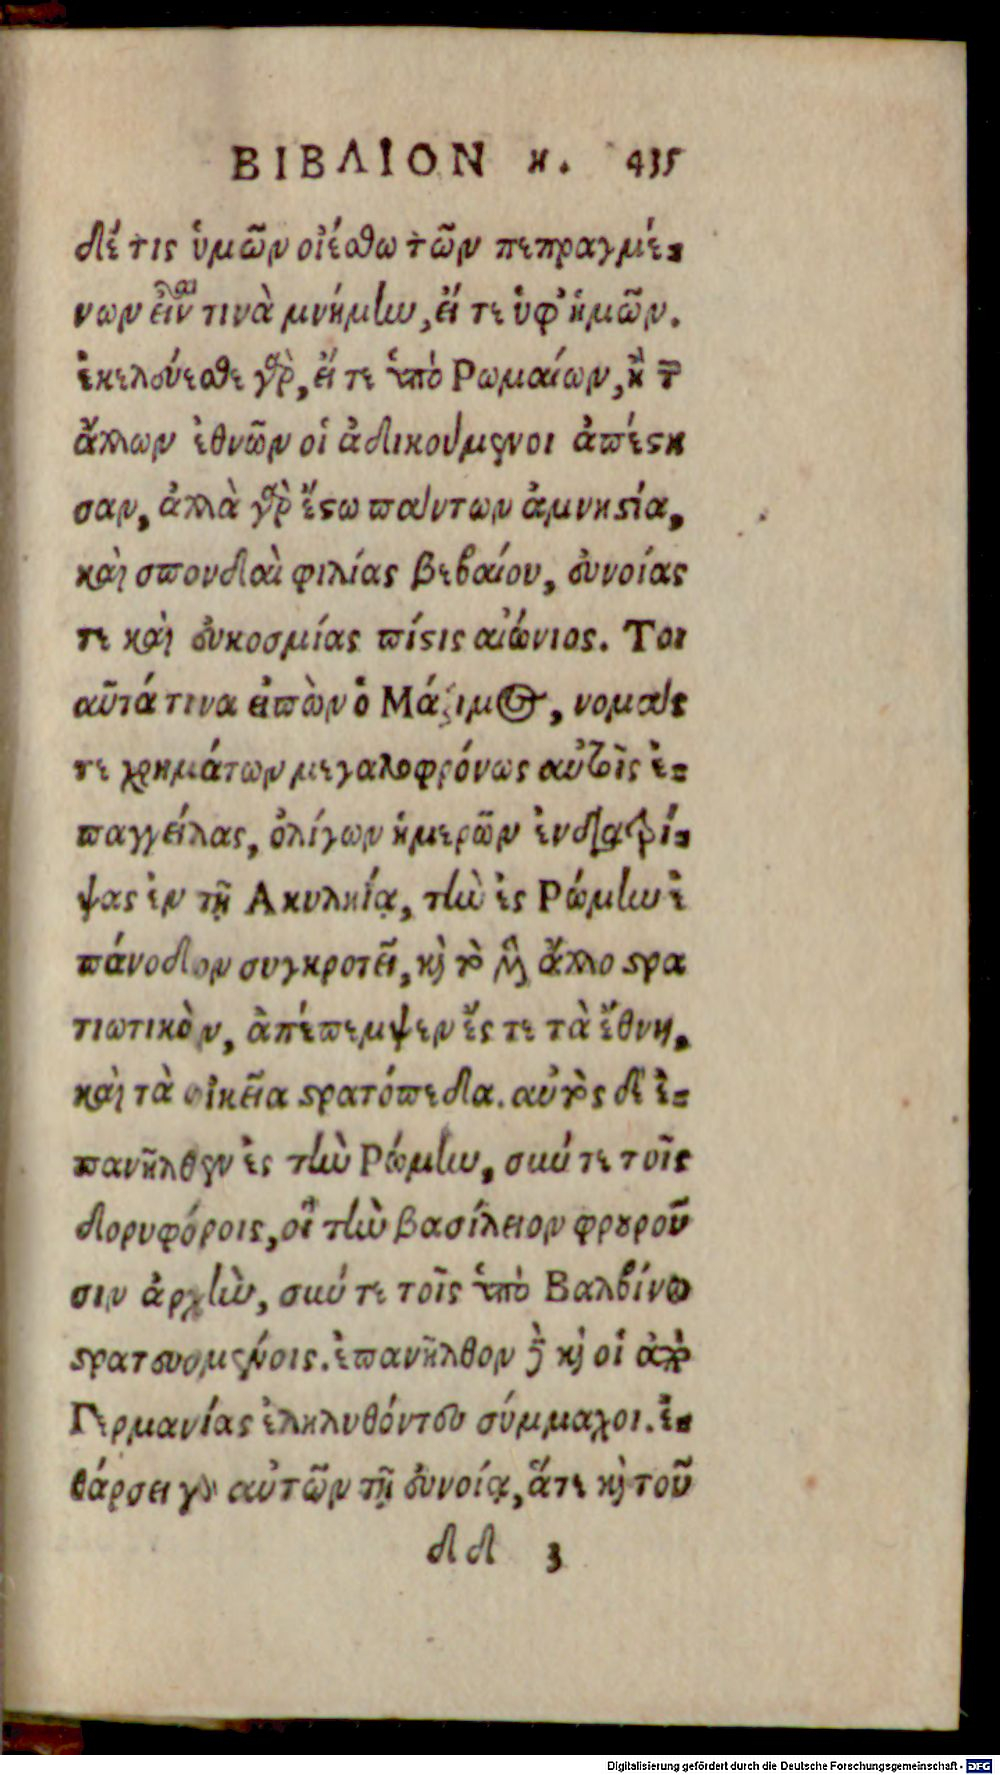 ΒΙΒΛΙΟΝ η. 435
δέ τις ὑμῶν οἰέσθω τῶν πεπραγμέ-
νων εἶναι τινὰ μνήμην, εἴ τε ὑφ' ἡμῶν.
ἐκελεύεσθε γὰρ, εἴ τε ὑπὸ Ρωμαίων, ἢ τῶν
ἄλλων ἐθνῶν οἳ ἀδικούμενοι ἀπέστη
σαν, ἀλλὰ γὰρ ἔστω πάντων ἀμνηστία,
καὶ σπονδαὶ φιλίας βεβαίου, εὐνοίας
τε καὶ εὐκοσμίας πίστις αἰώνιος. Τοι
αῦτά τινα εἰπὼν ὁ Μάξιμος, νομάς
τε χρημάτων μεγαλοφρόνως αὐτοῖς ἐ-
παγγείλας, ὀλίγων ἡμερῶν ἐνδιατρί-
ψας ἐν τῇ Ακυληίᾳ, τὴν ἐς Ρώμην ἐ
πάνοδον συγκροτεῖ, καὶ τὸ μὲν ἄλλο στρα
τιωτικὸν, ἀπέπεμψεν ἔς τε τὰ ἔθνη,
καὶ τὰ οἰκεῖα στρατόπεδα. αὐτὸς δὲ ἐ-
πανῆλθεν ἐς τὴν Ρώμην, σύν τε τοῖς
δορυφόροις, οἳ τὴν βασίλειον φρουροῦ
σιν ἀρχὴν, σύν τε τοῖς ὑπὸ Βαλβίνῳ
στρατευομένοις. ἐπανῆλθον δὲ καὶ οἱ ἀπὸ
Γερμανίας ἐληλυθόντες σύμμαχοι. ἐ-
θάρσει γὰρ αὐτῶν τῇ εὐνοίᾳ, ἅτε καὶ τοῦ
δδ 3
Digitalisierung gefördert durch die Deutsche Forschungsgemeinschaft - DFG